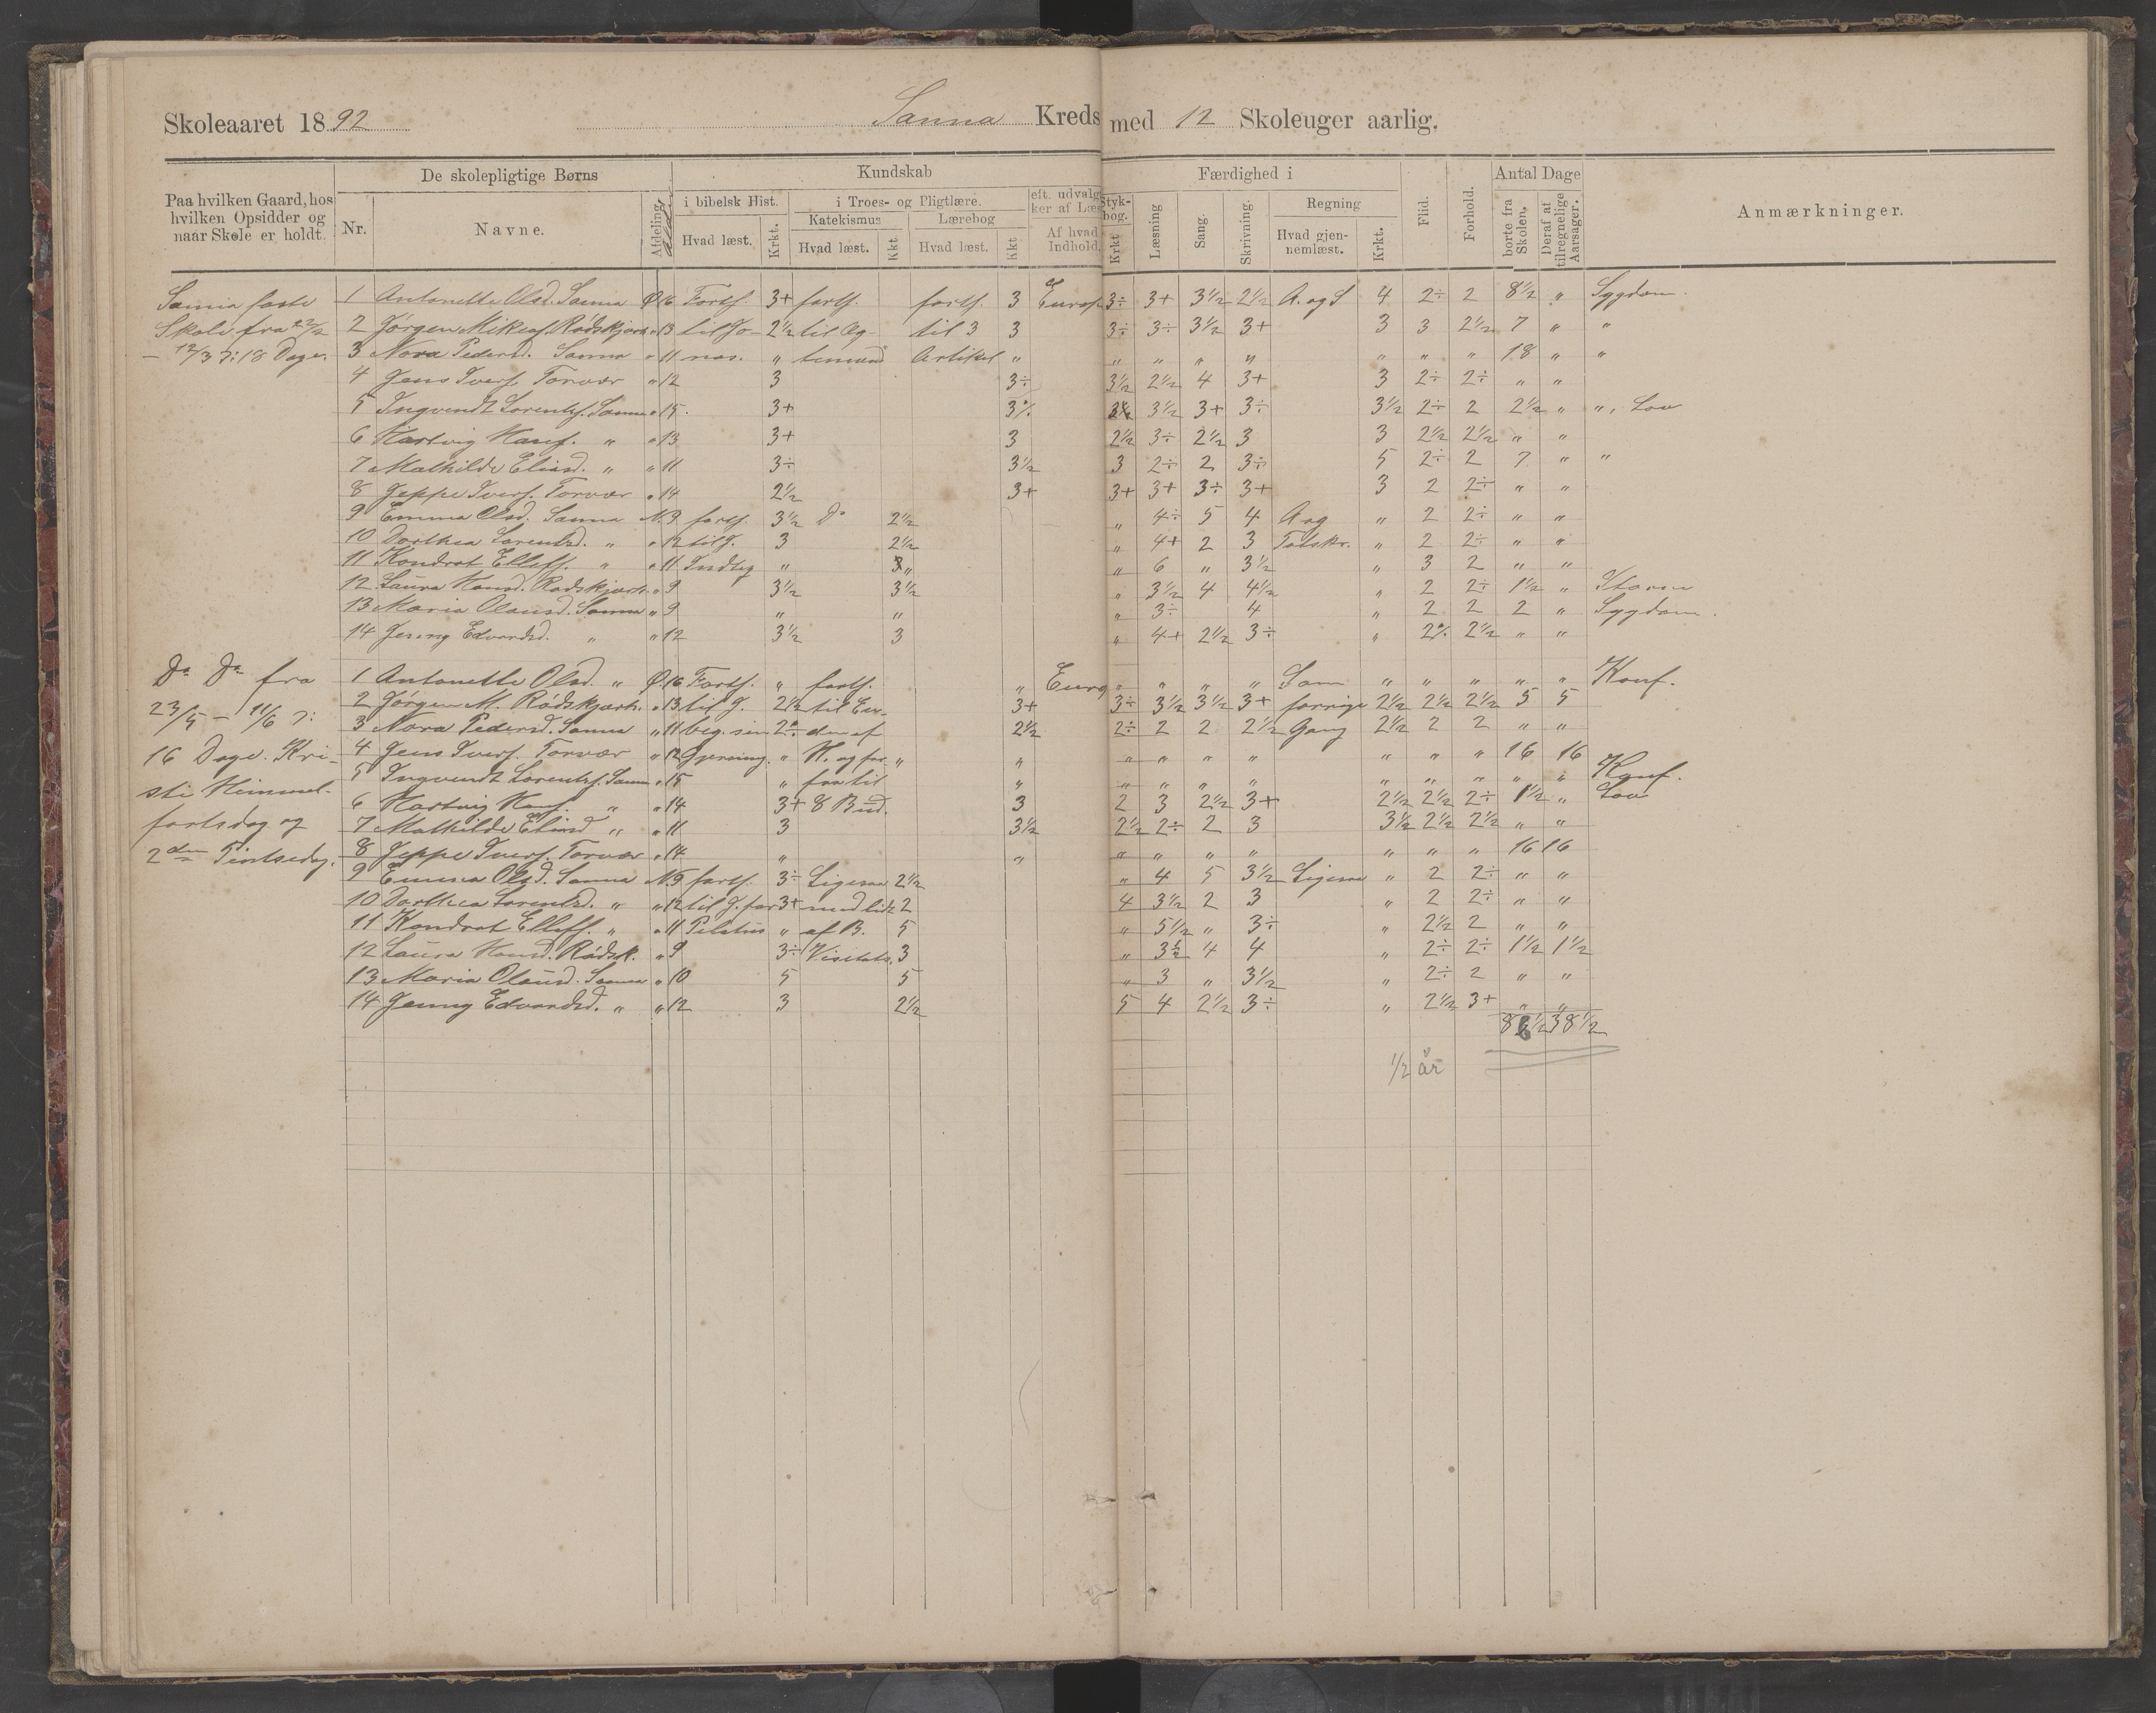 Skoleaaret 1892 Sanna Kreds med 12 Skoleuger aarlig.
De skolepligtige Børns Kundskab Færdighed i Antal Dage
Paa hvilken Gaard, hos hvilken Opsidder og naar Skole er holdt. Nr. Navne. Afdeling. Alder i bibelsk Hist. Hvad læst. Krkt. i Troes- og Pligtlære. Katekismus Hvad læst. Kkt. Lærebog Hvad læst. Kkt eft. udvalg Styk- ker af Læs bog. Af hvad Indhold. Krkt Læsning Sang. Skrivning. Regning Hvad gjen- nemlæst. Krkt. Flid. Forhold. borte fra Skolen. Deraf at tilregnelige Aarsager. Anmærkninger.
Sanna faste 1 Antonette Olsd. Sanna Ø 16 Forts. 3+ forts. forts. 3 Europa 3÷ 3+ 3½ 2½ A. og S 4 2÷ 2 8½ „ Sygdom.
Skole fra 22/2 2 Jørgen Mikals. Rødskjærh. „ 13 til Jo- 2½ til Og- til 3 3 3÷ 3÷ 3½ 3+ 3 3 2½ 7 „ „
– 12/3 ɔ: 18 Dage. 3 Nora Pedersd. Sanna „ 11 nas. „ Artikel „ „ „ „ „ „ „ „ 18 „ „
4 Jens Ivers. Torvær „ 12 3 3÷ 3½ 2½ 4 3+ 3 2÷ 2÷ „ „
5 Ingvendt Lorents. Sanna „ 15. 3+ 3÷ 3½ 3+ 3÷ 3½ 2÷ 2 2½ „ „, Lov
6 Hartvig Hans. „ „ 13 3+ 3 2½ 3÷ 2½ 3 3 2½ 2½ „ „
7 Mathilde Eliasd. „ „ 11 3÷ 3½ 3 2÷ 2 3÷ 5 2÷ 2 7 „ „
8 Jeppe Ivers. Torvær „ 14 2½ 3+ 3+ 3+ 3÷ 3+ 3 2 2÷ „ „
9 Emma Olsd. Sanna N. 9 forts. 3½ Do 2½ „ 4÷ 5 4 A og „ 2 2÷ „ „
10 Dorthea Lorentsd. „ „ 12 til J. 3 2½ „ 4+ 2 3 Talskr. „ 2 2÷ „ „
11 Kondrat Ellefs. „ „ 11 Indtog „ „ „ 6 „ 3½ „ 3 2 „ „
12 Laura Hansd. Rødskjærh. „ 9 3½ 3½ „ 3½ 4 4½ „ 2 2÷ 1½ „ Storm
13 Maria Olausd. Sanna „ 9 „ „ „ 3÷ 4 „ 2 2 2 „ Sygdom.
14 Jenny Edvardsd. „ „ 12 3½ 3 „ 4+ 2½ 3÷ „ 2÷ 2½ „ „
Do Do fra 1 Antonette Olsd. „ Ø 16 Forts. „ forts. „ Europ „ „ „ „ Som „ „ „ „ „ Konf.
23/5 – 11/6 ɔ: 2 Jørgen M. Rødskjærh. „ 13 til J. 2½ til 3+ 3÷ 3½ 3½ 3+ forrige 2½ 2½ 2½ 5 5
3 Nora Pedersd. Sanna „ 11 beg. sin 2÷ den af 2½ 2÷ 2 2 2½ Gang 2½ 2 2 „ „
16 Dage. Kri- 4 Jens Ivers. Torvær „ 12 Gjerning. „ H. og for- „ „ „ „ „ „ „ „ „ 16 16
sti Himmel- 5 Ingvendt Lorents. Sanna „ 15 „ fra til „ „ „ „ „ „ „ „ „ „ Konf.
fartsdag og 6 Hartvig Hans. „ „ 14 3+ 8 Bud. 3 2 3 2½ 3+ 2½ 2½ 2÷ 1½ „ Lov
2den Pintsedag. 7 Mathilde Eliasd „ „ 11 3 3½ 2½ 2÷ 2 3 3½ 2½ 2½ „ „
8 Jeppe Ivers. Torvær „ 14 „ „ „ „ „ „ „ „ „ 16 16
9 Emma Olsd. Sanna N. 9 forts. 3÷ Ligesaa 2½ „ 4 5 3½ Ligesaa „ 2 2÷ „ „
10 Dorthea Lorentsd. „ „ 12 til J. for 3+ med lidt 2 4 3½ 2 3 „ 2 2÷ „ „
11 Kondrat Ellefs. „ „ 11 Pilatus „ af B. 5 „ 5½ „ 3÷ „ 2½ 2 „ „
12 Laura Hansd. Rødsk. „ 9 3÷ Visitats. 3 „ 3½ 4 4 „ 2÷ 2÷ 1½ 1½
13 Maria Olausd. Sanna „ 10 5 5 „ 3 „ 3½ „ 2÷ 2 „ „
14 Jenny Edvardsd. „ „ 12 3 2½ 5 4 2½ 3÷ „ 2½ 3+ „ „
86½ 38½
½ år